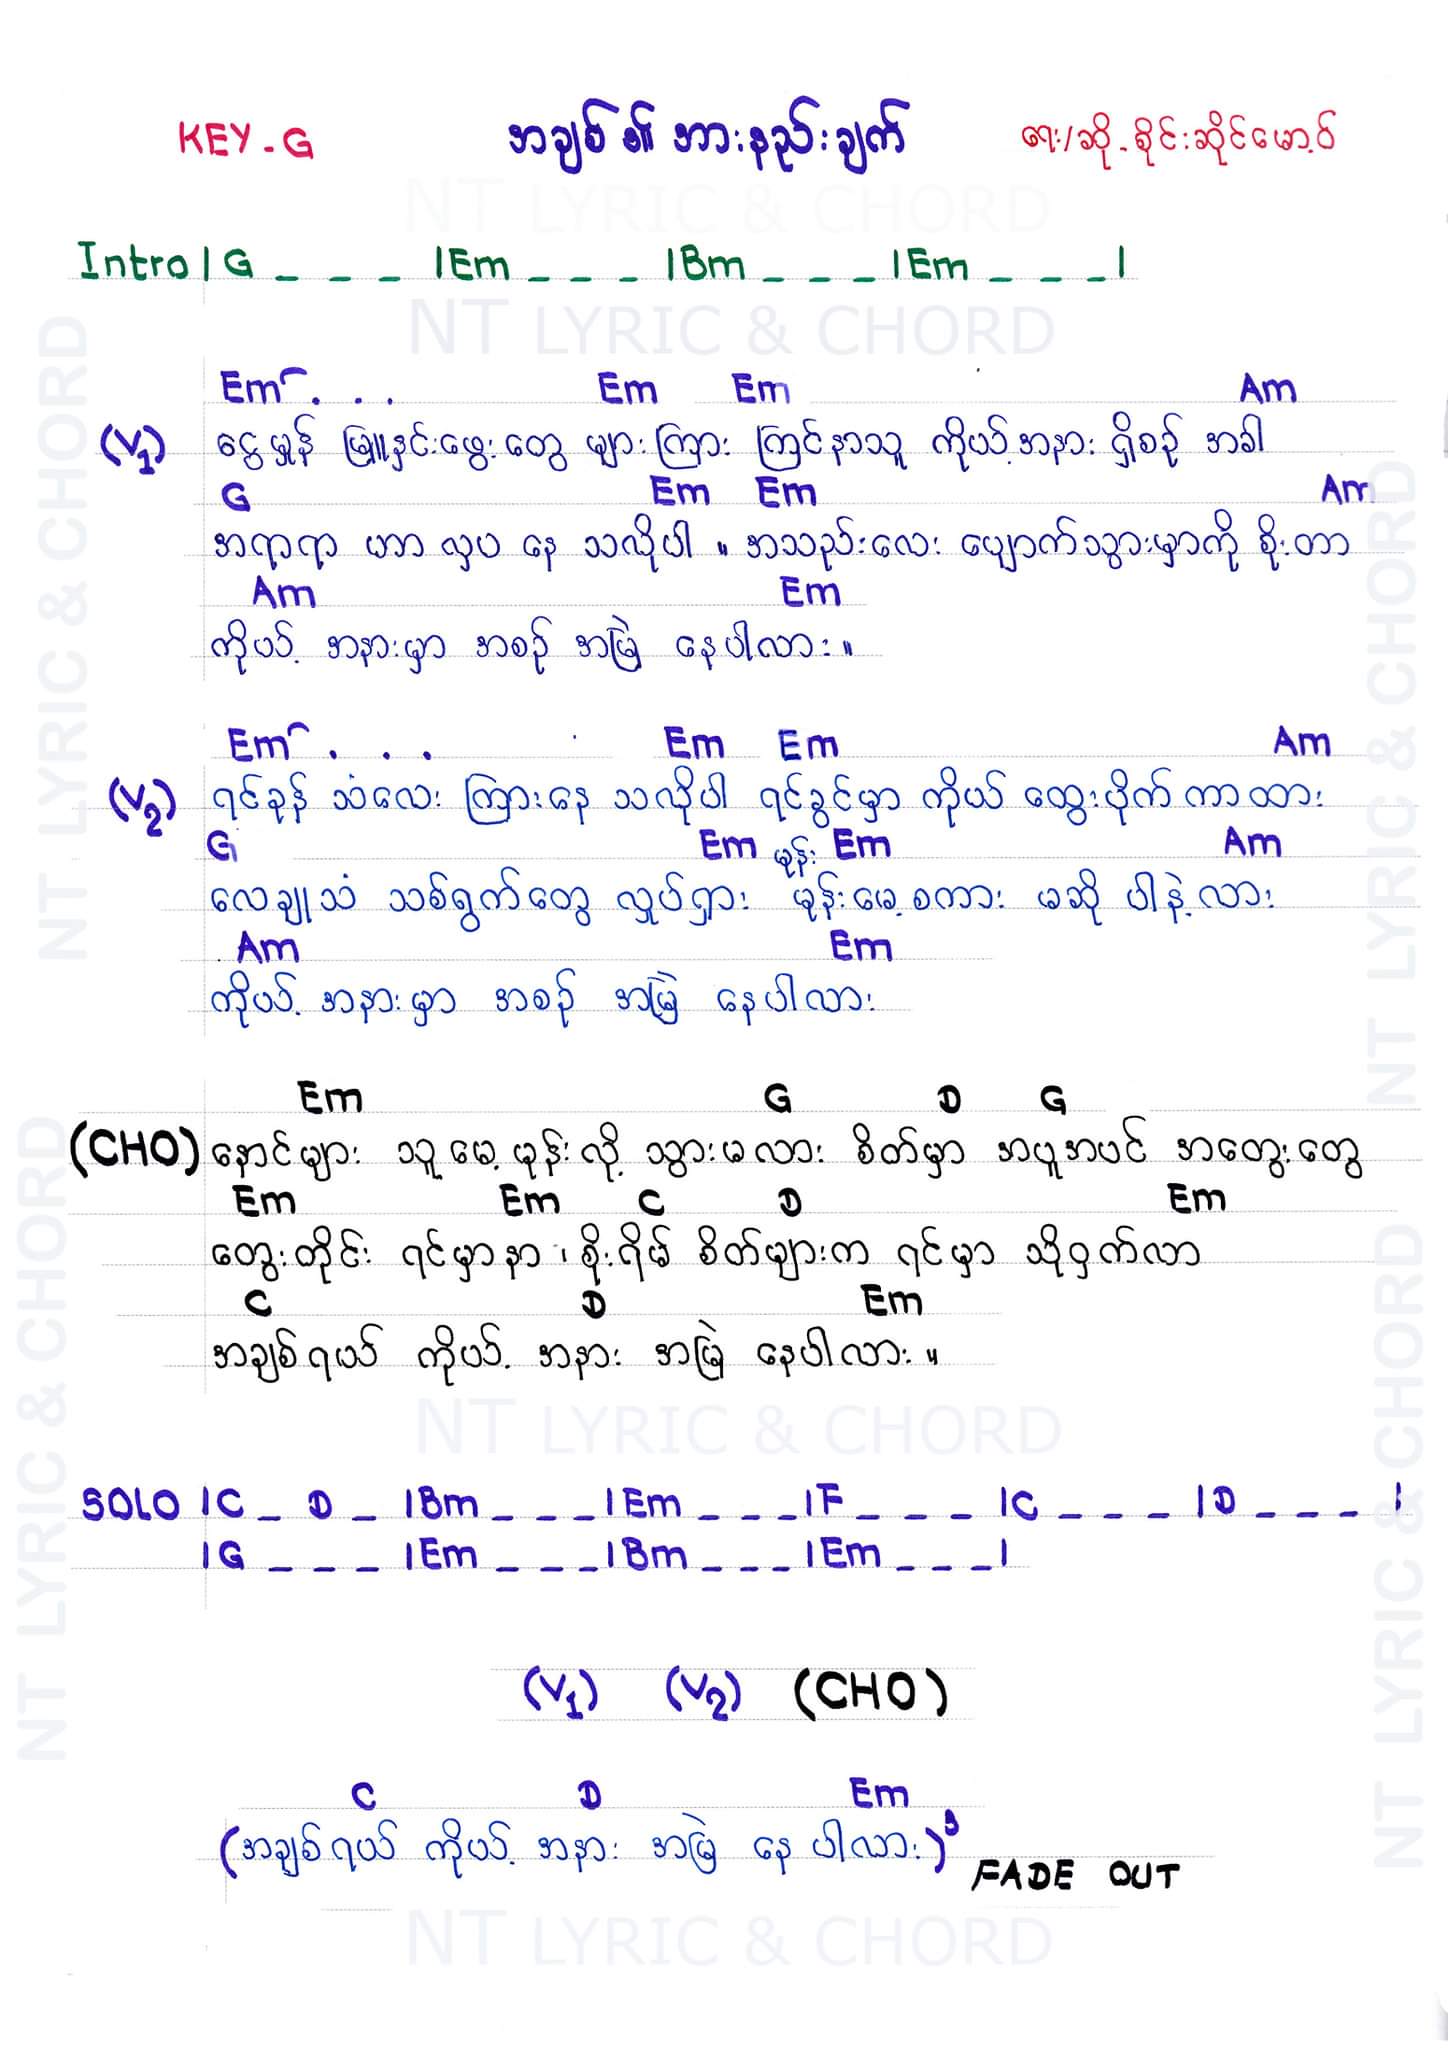 KEY - G အချစ်၏ အားနည်းချက် ရေး/ဆို - စိုင်းဆိုင်မော့ဝ်
NT LYRIC & CHORD
Intro | G _ _ _ | Em _ _ _ | Bm _ _ _ | Em _ _ _ |
NT LYRIC & CHORD
Em . . . Em Em Am
(V1) ငွေမှုန် မြူနှင်းဖွေးတွေ များကြား ကြင်နာသူ ကိုယ့်အနား ရှိစဉ် အခါ
G Em Em Am
အရာရာ ဟာ လှပ နေ သလိုပါ ။ အသည်းလေး ပျောက်သွားမှာကို စိုးတာ
Am Em
ကိုယ့် အနားမှာ အစဉ် အမြဲ နေပါလား ။
Em . . . Em Em Am
(V2) ရင်ခုန် သံလေး ကြားနေ သလိုပါ ရင်ခွင်မှာ ကိုယ် ထွေးပိုက် ကာထား
G Em မုန်း Em Am
လေချုသံ သစ်ရွက်တွေ လှုပ်ရှား မုန်းမေ့စကား မဆို ပါနဲ့လား
Am Em
ကိုယ့် အနားမှာ အစဉ် အမြဲ နေပါလား
Em G D G
(CHO) နောင်များ သူ မေ့မုန်းလို့ သွားမလား စိတ်မှာ အပူအပင် အတွေးတွေ
Em Em C D Em
တွေးတိုင်း ရင်မှာနာ ၊ စိုးရိမ် စိတ်များက ရင်မှာ သိုဝှက်လာ
C D Em
အချစ်ရယ် ကိုယ့် အနား အမြဲ နေပါလား ။
NT LYRIC & CHORD
SOLO | C _ D _ | Bm _ _ _ | Em _ _ _ | F _ _ _ | C _ _ _ | D _ _ _ |
| G _ _ _ | Em _ _ _ | Bm _ _ _ | Em _ _ _ |
(V1) (V2) (CHO)
C D Em
(အချစ်ရယ် ကိုယ့် အနား အမြဲ နေ ပါလား)၁
FADE OUT
NT LYRIC & CHORD
NT LYRIC & CHORD
NT LYRIC & CHORD
NT LYRIC & CHORD
NT LYRIC & CHORD